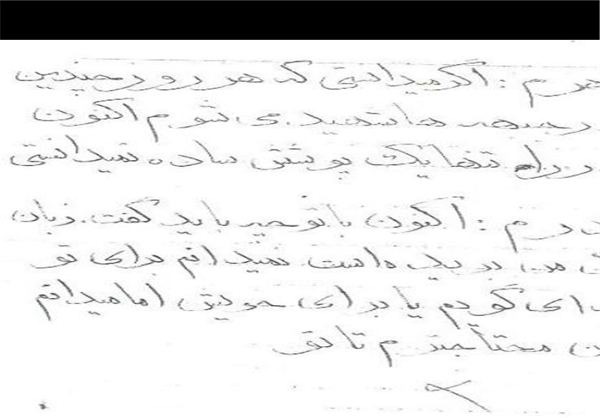 هرم : اگر میدانستی که هر روز چندین
در جبهه ها شهید می شوم اکنون
را تنها یک پوشش ساده نمیدانستی
درم : اکنون با تو چه باید گفت. زبان
من بریده است نمیدانم برای تو
ای گویم یا برای خویش اما میدانم
من محتاجترم تا تو